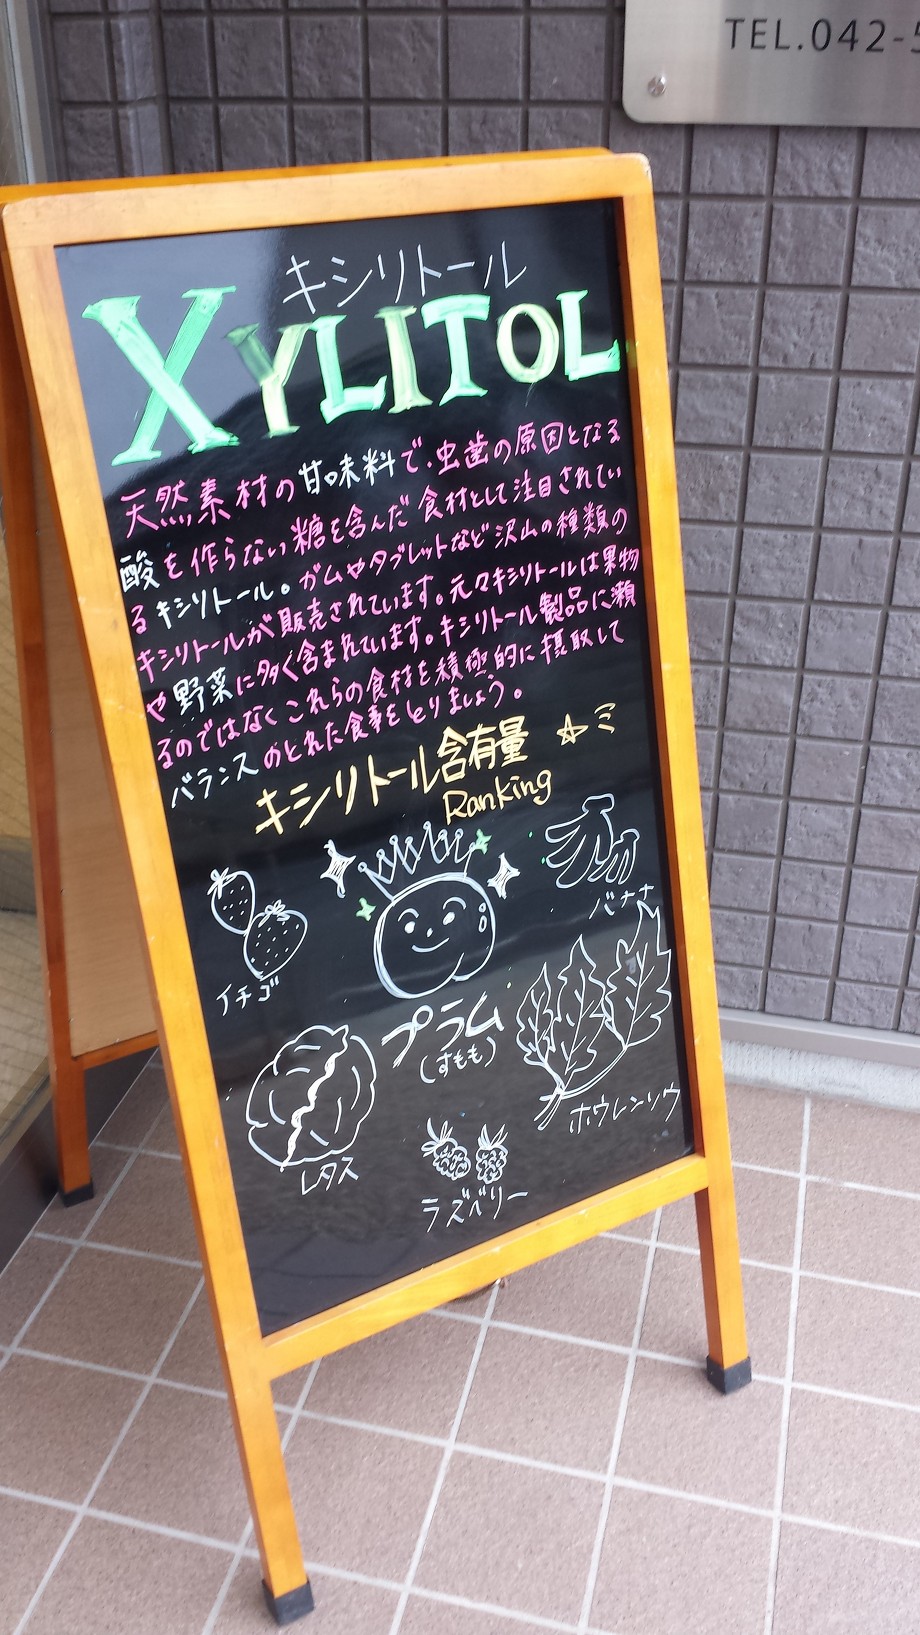 TEL.042-5
キシリトール
XYLITOL
天然素材の甘味料で、虫歯の原因となる
酸を作らない糖を含んだ食材として注目されてい
るキシリトール。ガムやタブレットなど沢山の種類の
キシリトールが販売されています。元々キシリトールは果物
や野菜に多く含まれています。キシリトール製品に頼
るのではなくこれらの食材を積極的に摂取して
バランスのとれた食事をとりましょう。
キシリトール含有量
Ranking
バナナ
イチゴ
プラム
(すもも)
ホウレンソウ
レタス
ラズベリー